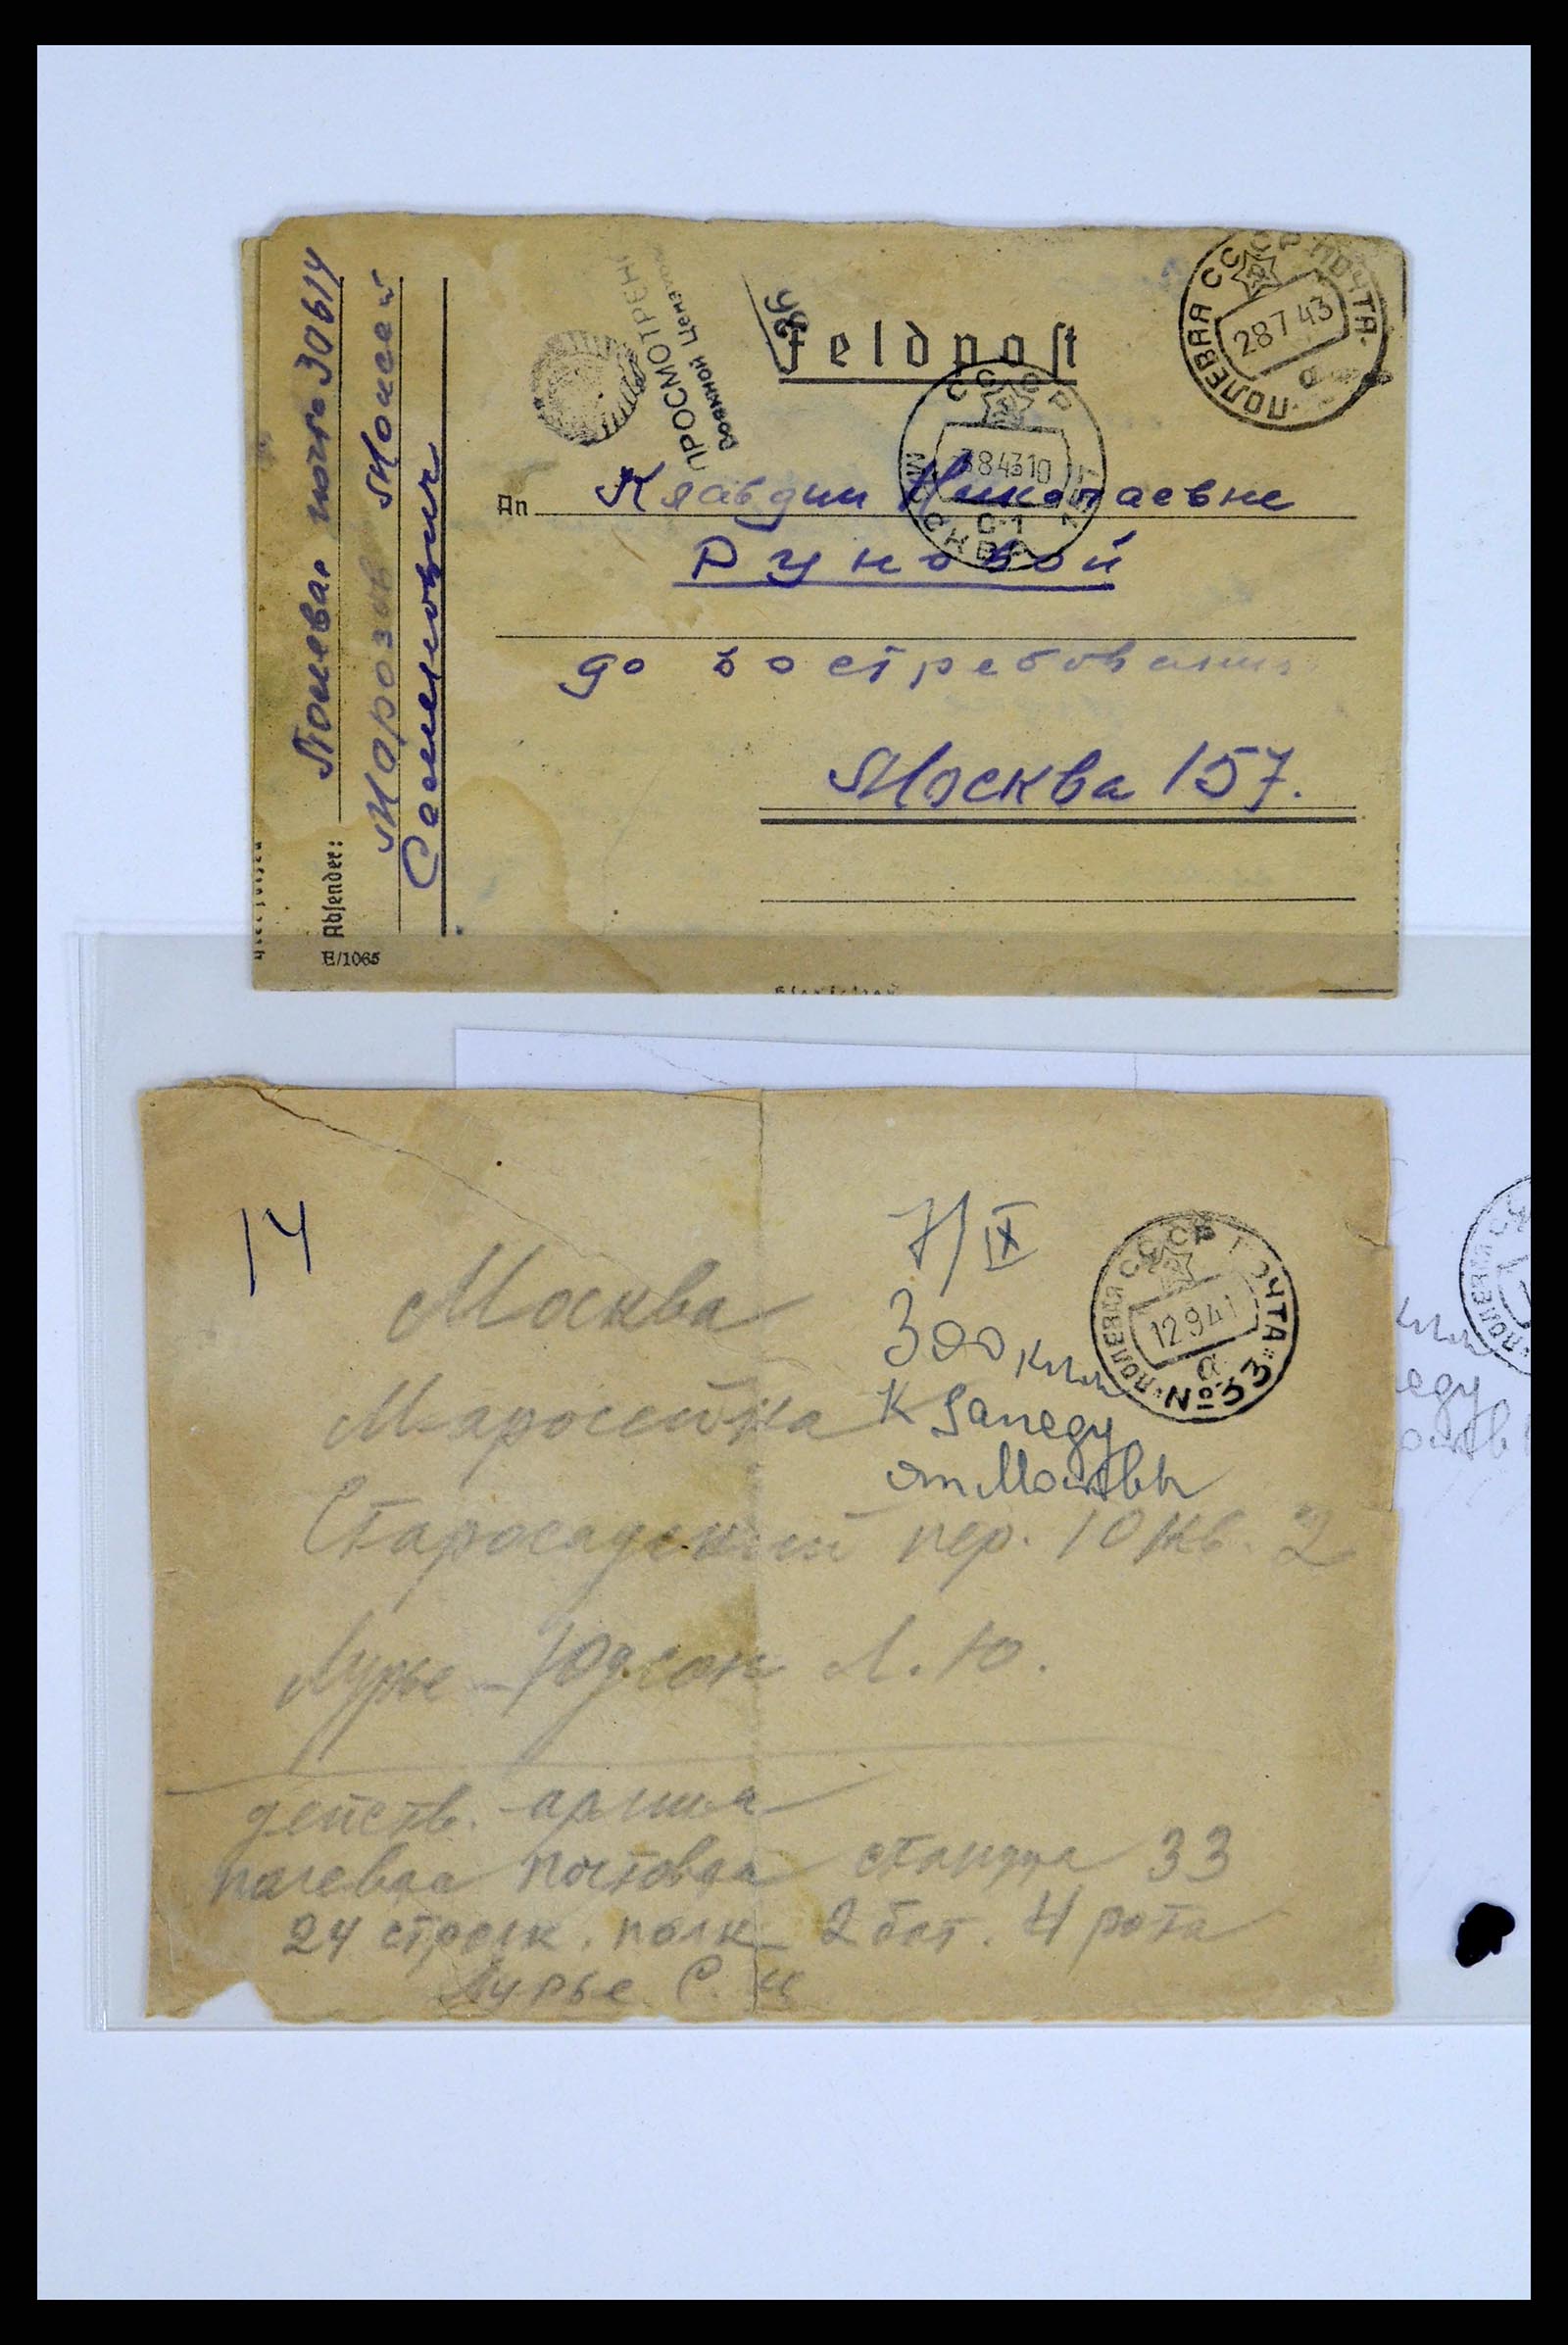 Feldpost
СССР ПОЛЕВАЯ ПОЧТА
28 7 43
а
ПРОСМОТРЕНО
Военной Цензурой
СССР
8 43 10
МОСКВА 157
An Клавдии Николаевне
Руновой
до востребования
Москва 157.
Absender:
Полевая почта 30614
Морозов Моисей
Самойлович
E/1065
14
7/IX
300 клм
к западу
от Москвы
СССР ПОЛЕВАЯ ПОЧТА
12 9 41
а
№ 33
Москва
Маросейка
Старосадский пер. 10 кв. 2
Лурье-Юдсон Л. Ю.
действ. армия
полевая почтовая станция 33
24 стрелк. полк 2 бат. 4 рота
Лурье С. И